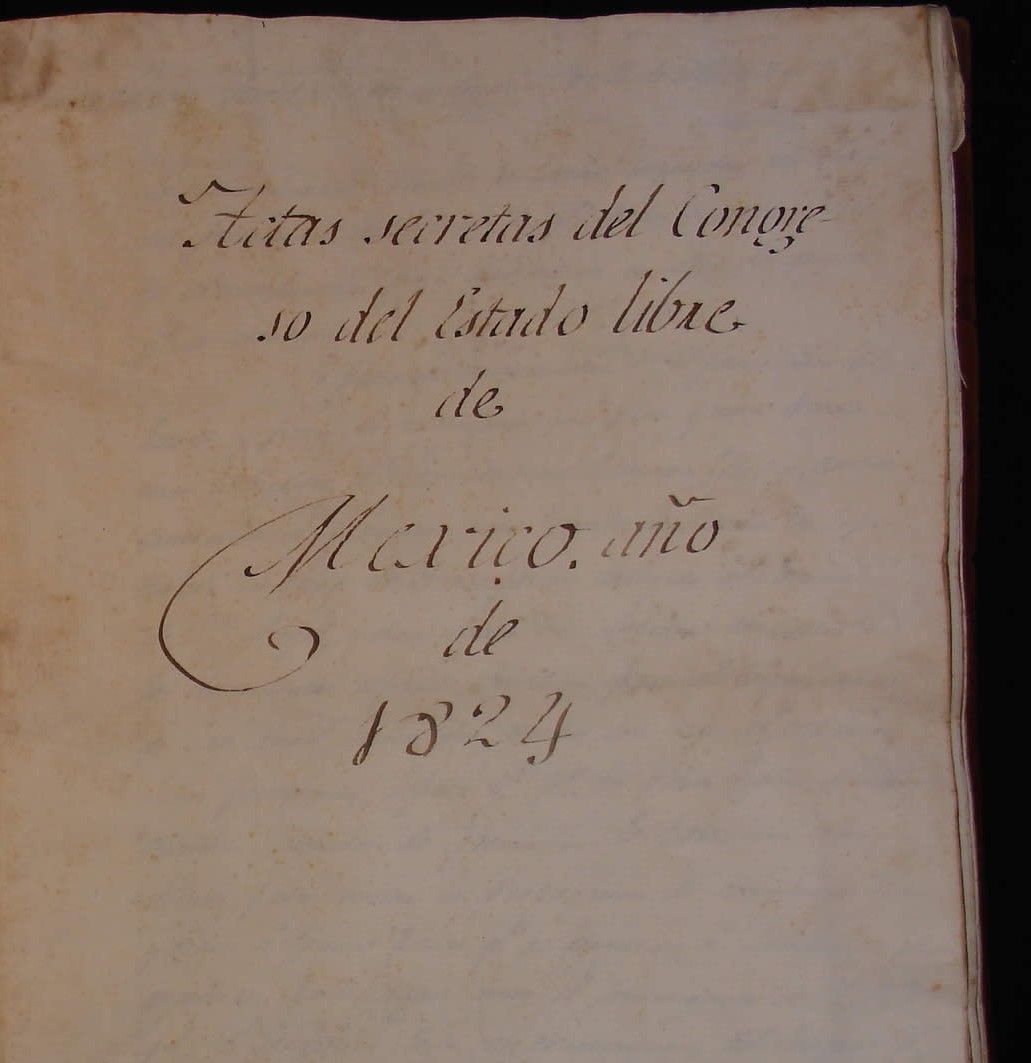 Actas secretas del Congre-
so del Estado libre
de
Mexico. año
de
1824